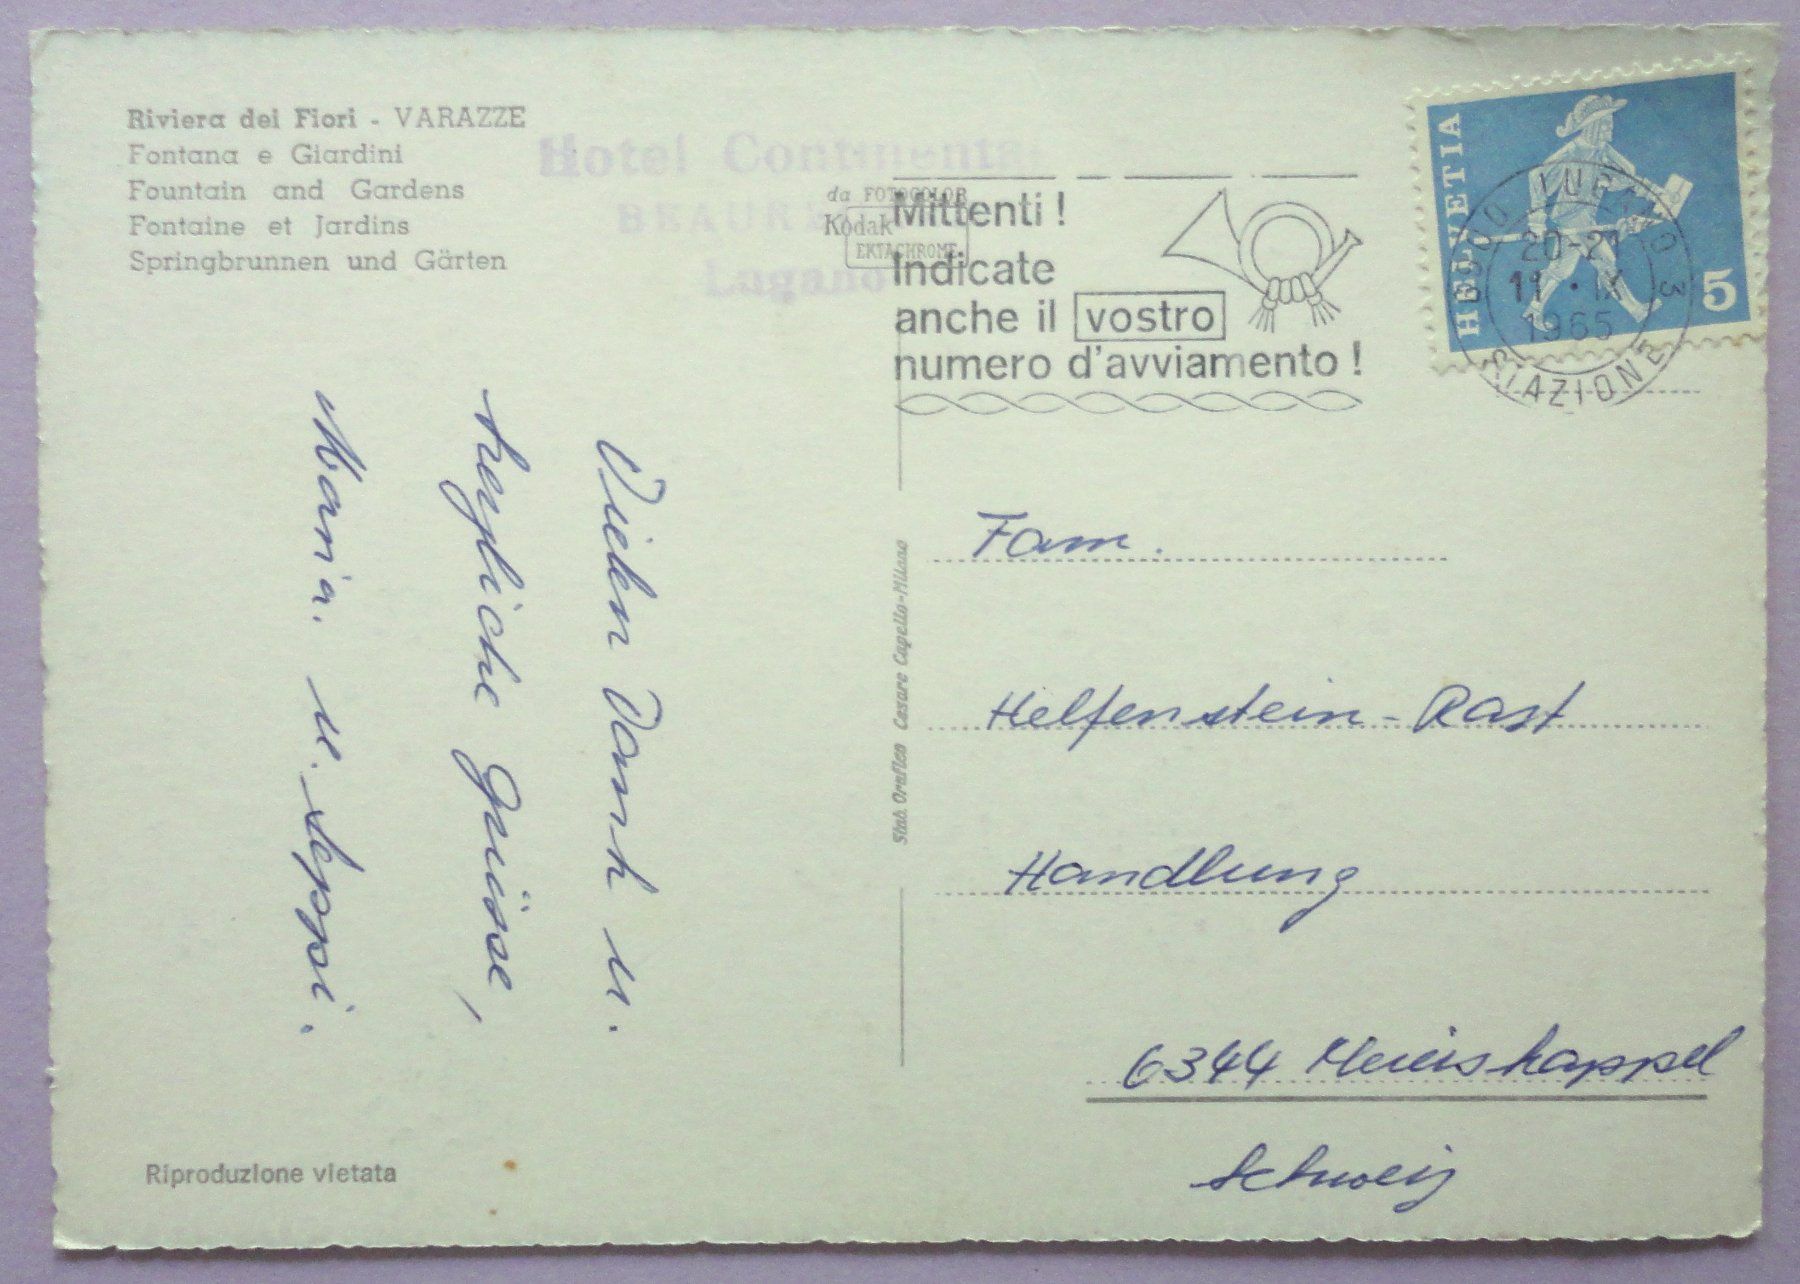 Riviera dei Fiori - VARAZZE
Fontana e Giardini
Fountain and Gardens
Fontaine et Jardins
Springbrunnen und Gärten
Hotel Continental
Lugano
da FOTOCOLOR
Kodak
EKTACHROME
Mittenti !
Indicate
anche il vostro
numero d'avviamento !
HELVETIA
5
LUGANO 3
20-21
11 · IX
1965
Vielen Dank u.
herzliche Grüsse,
Maria. u. Seppi.
Stab. Grafico Cesare Capello-Milano
Fam.
Helfenstein-Rast
Handlung
6344 Meierskappel
Schweiz
Riproduzione vietata